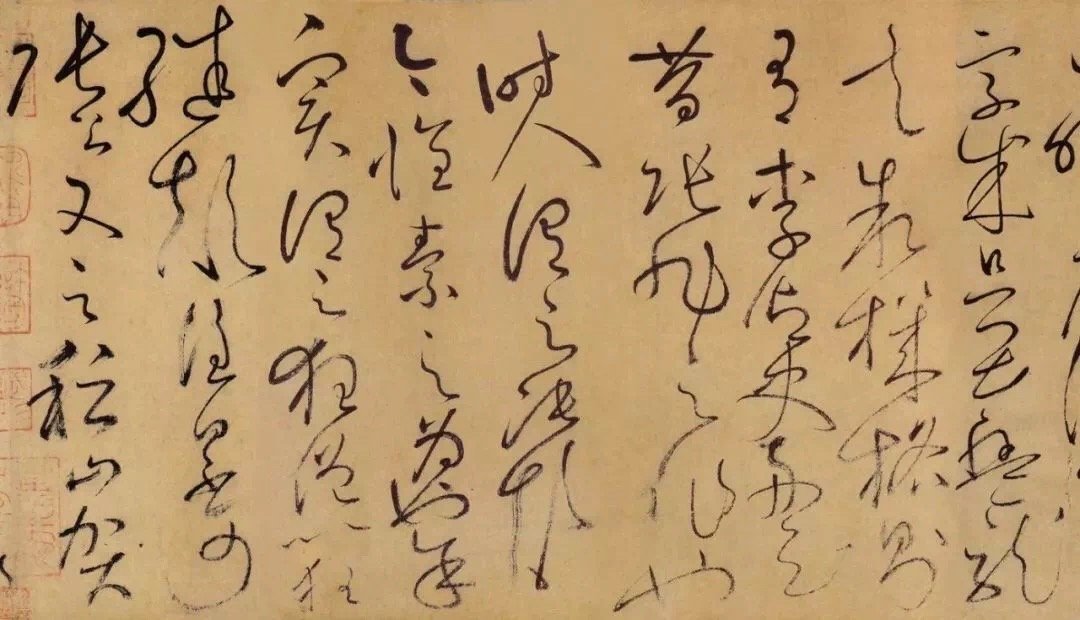 字成只畏盤龍
走敘機格則
有李御史舟云
昔張旭之作也
時人謂之張顛
今懷素之為也余
實謂之狂僧以狂
繼顛誰曰不可
張公又云稽山賀